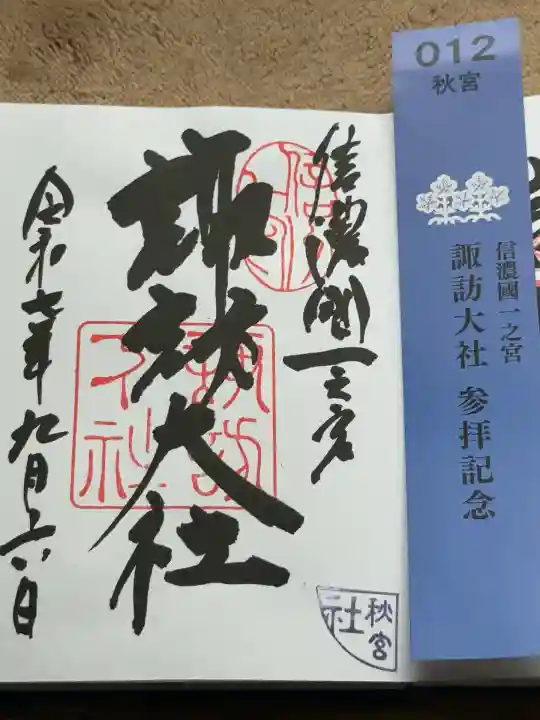 信濃國一之宮
諏訪大社
令和七年九月二六日
諏訪
大社
秋宮
社
012
秋宮
信濃國一之宮
諏訪大社 参拝記念